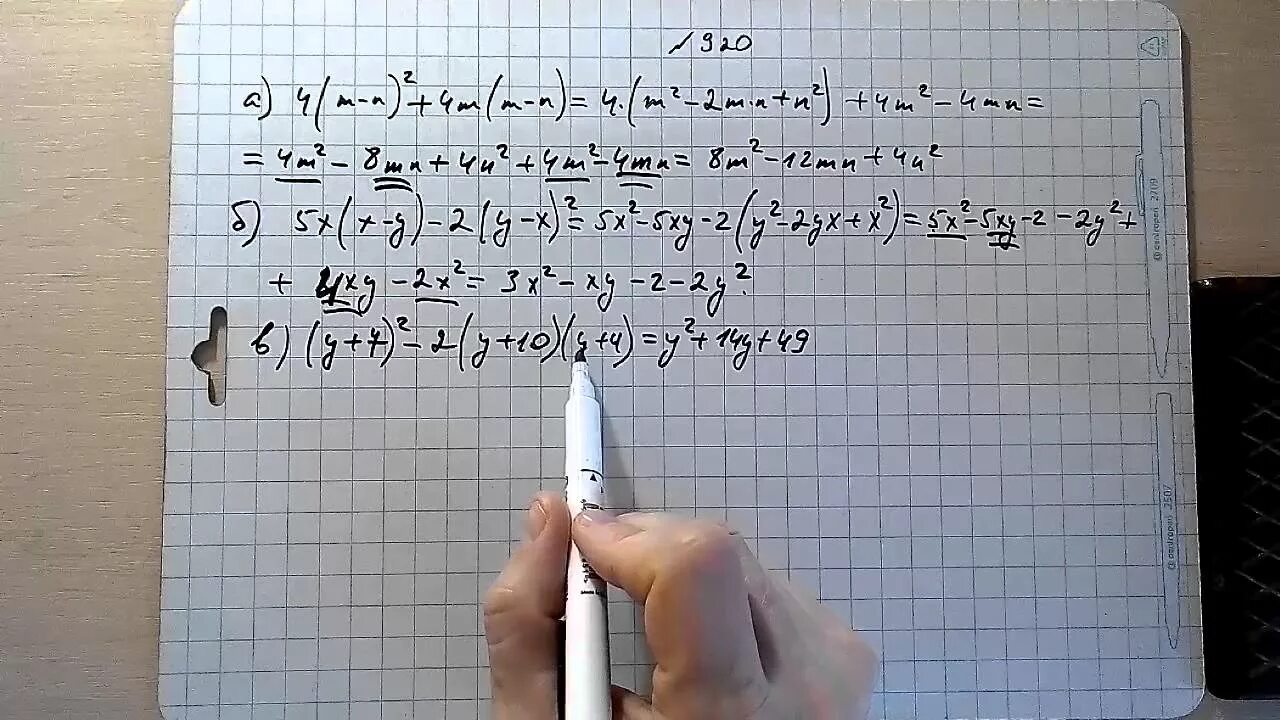 №920
а) 4(m-n)²+4m(m-n)=4·(m²-2m·n+n²)+4m²-4mn=
=4m²-8mn+4n²+4m²-4mn=8m²-12mn+4n²
б) 5x(x-y)-2(y-x)²=5x²-5xy-2(y²-2yx+x²)=5x²-5xy-2-2y²+
+4xy-2x²=3x²-xy-2-2y².
в) (y+7)²-2(y+10)(y+4)=y²+14y+49
centropen 2709
centropen 2507